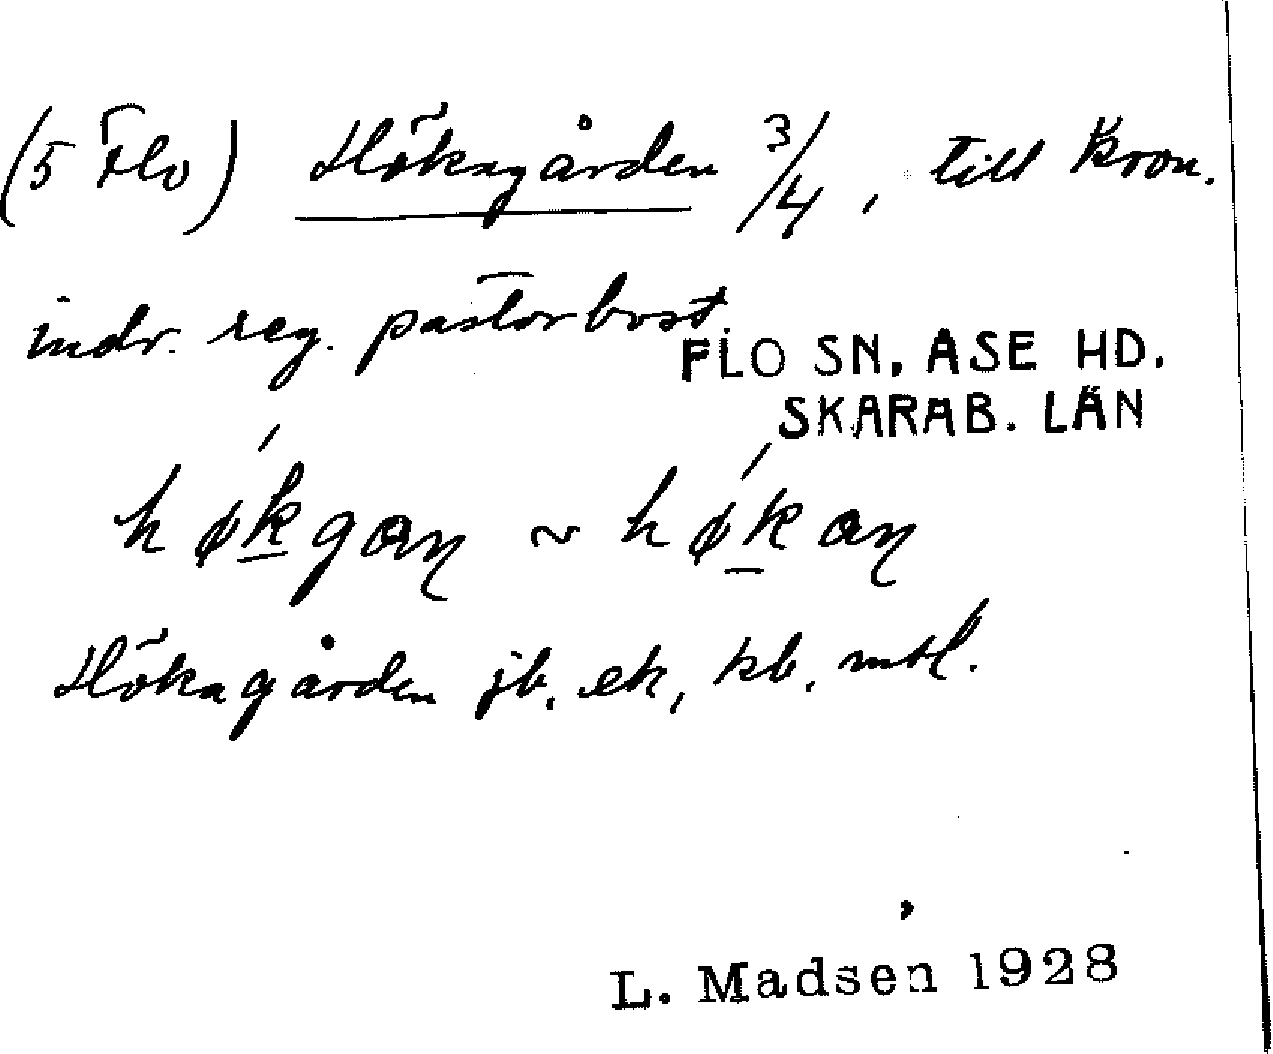 (5 Flo) Höksgården 3/4, till Kron.
indr. reg. pastorbost.
FLO SN, ASE HD.
SKARAB. LÄN
høkgaɳ ~ høkaɳ
Hökagården jb, ek, kb, mtl.
L. Madsen 1928